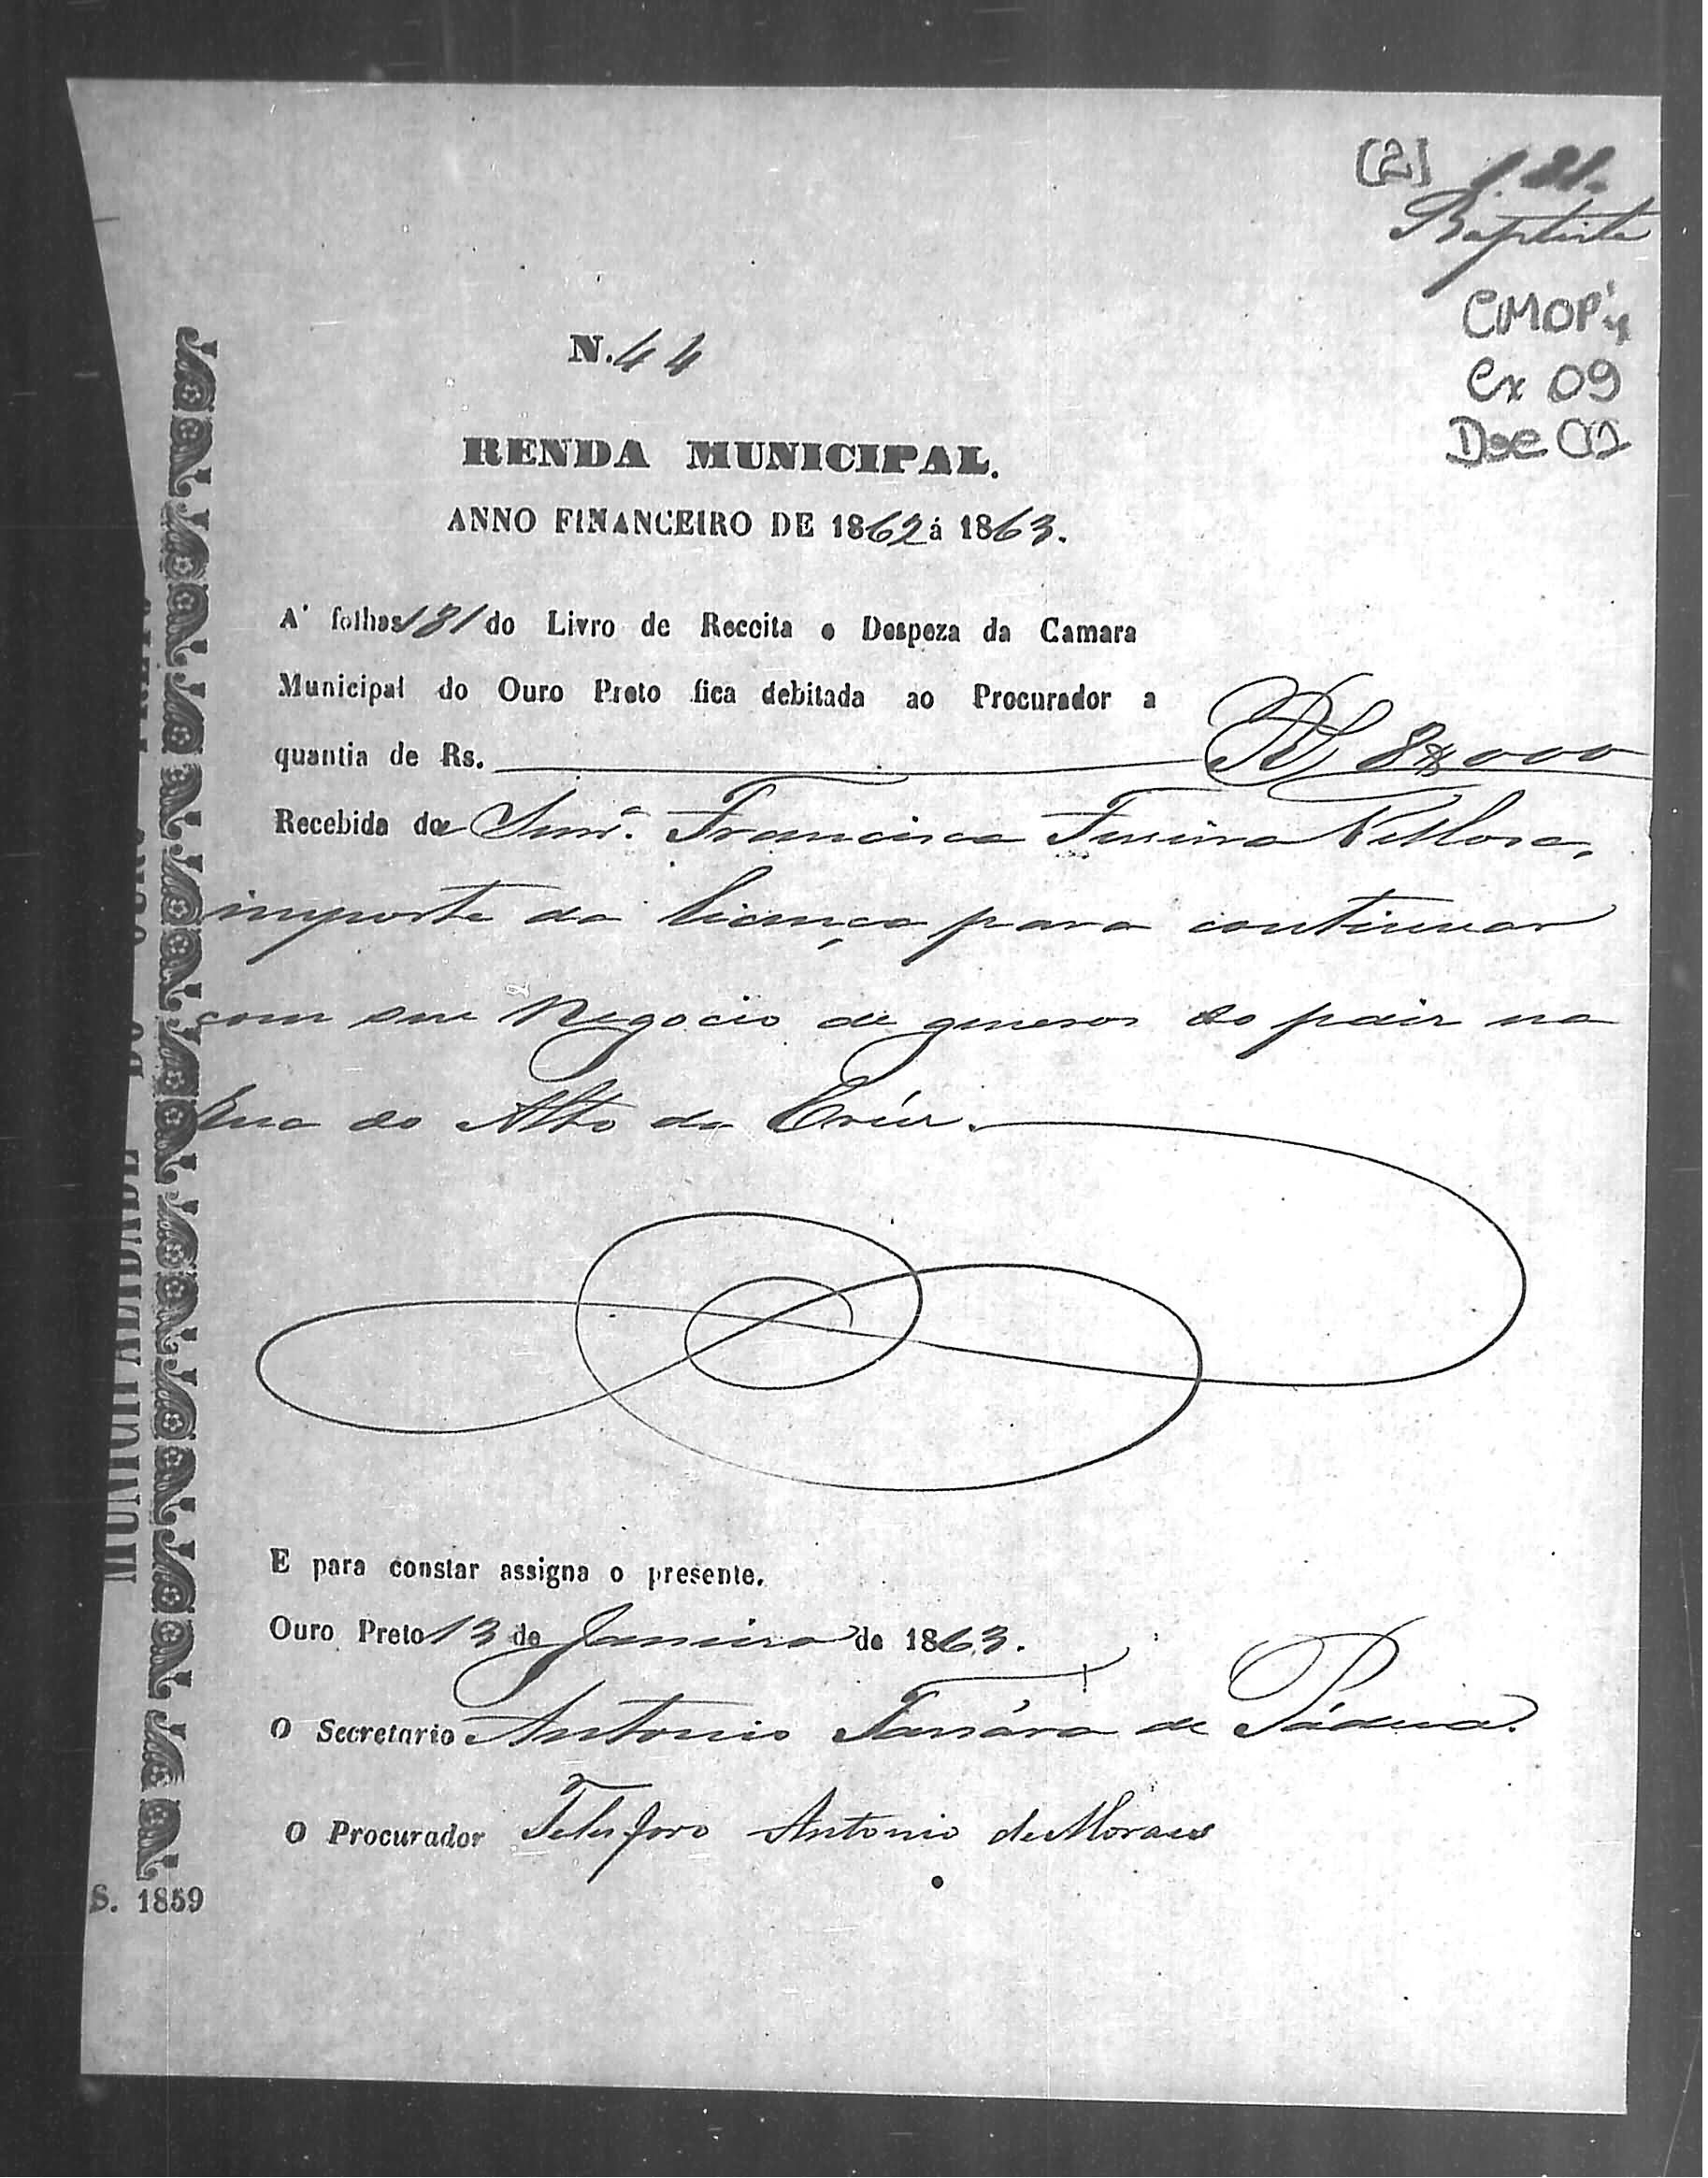 [2]
Baptista
CMOP
Cx 09
Doc 01
N. 44
RENDA MUNICIPAL.
ANNO FINANCEIRO DE 1862 á 1863.
A' folhas 131 do Livro de Receita e Despeza da Camara
Municipal do Ouro Preto fica debitada ao Procurador a
quantia de Rs. Rs 8$000
Recebida de Snrª. Francisca Vellosa,
importe da licença para continuar
com seu Negocio de generos do paiz na
Rua do Alto da Crúz.
E para constar assigna o presente.
Ouro Preto 13 de Janeiro de 1863.
O Secretario Antonio de Pádua.
O Procurador Telesforo Antonio de Moraes
MUNICIPALIDADE DO OURO PRETO
S. 1859